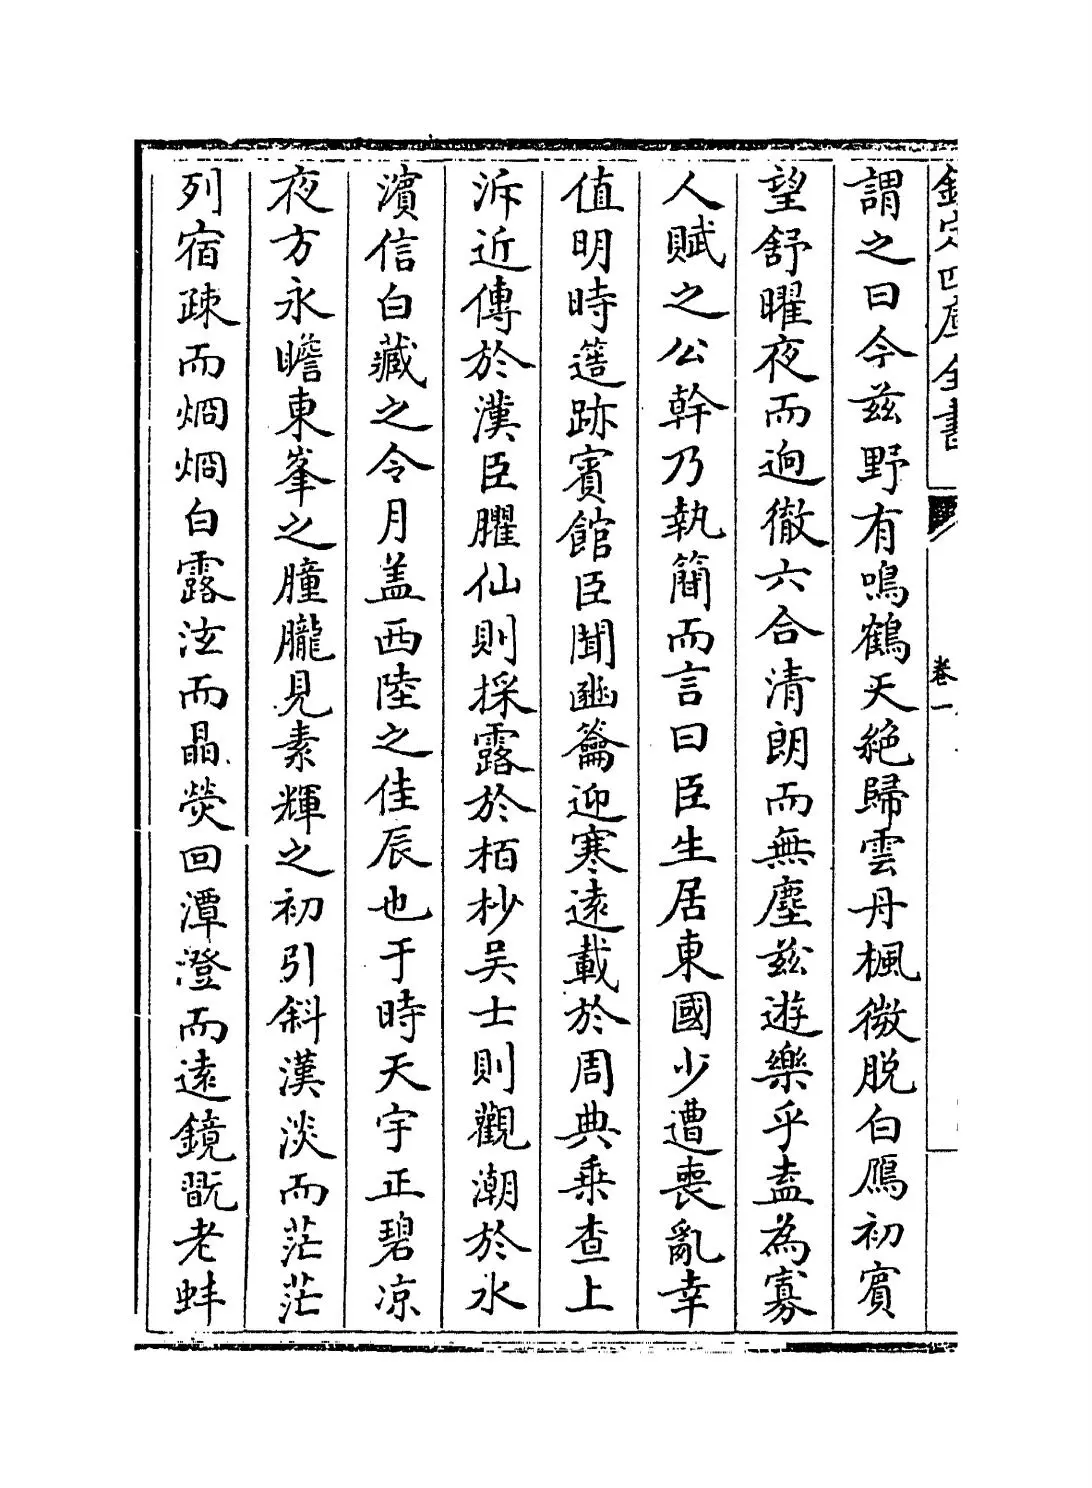 欽定四庫全書
卷一
謂之曰今茲野有鳴鶴天絶歸雲丹楓微脱白鴈初賓
望舒曜夜而逈徹六合清朗而無塵茲遊樂乎盍為寡
人賦之公幹乃執簡而言曰臣生居東國少遭喪亂幸
值明時簉跡賓館臣聞豳籥迎寒遠載於周典乗查上
泝近傳於漢臣臞仙則採露於栢杪吴士則觀潮於水
濵信白藏之令月盖西陸之佳辰也于時天宇正碧凉
夜方永瞻東峯之朣朧見素輝之初引斜漢淡而茫茫
列宿疎而烱烱白露泫而晶熒回潭澄而遠鏡翫老蚌